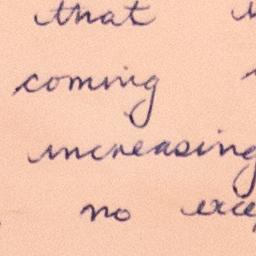 that
coming
increasing
no